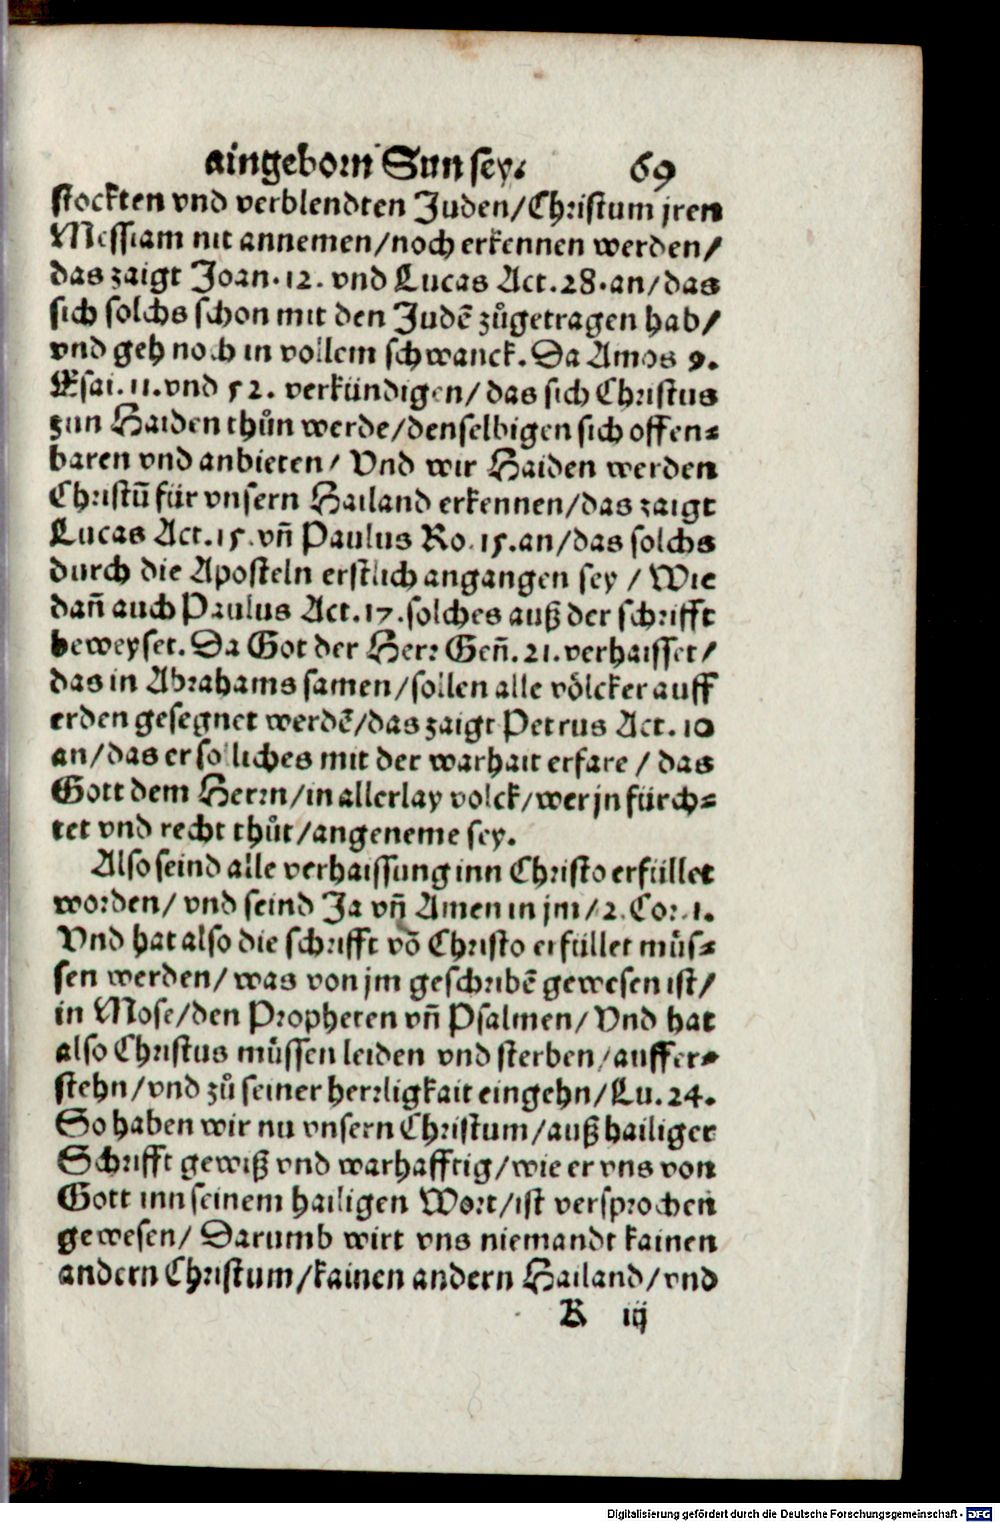 aingeborn Sun sey. 69
stockten vnd verblendten Juden/Christum jren
Messiam nit annemen/noch erkennen werden/
das zaigt Joan. 12. vnd Lucas Act. 28. an/das
sich solchs schon mit den Judē zůgetragen hab/
vnd geh noch in vollem schwanck. Da Amos 9.
Esai. 11. vnd 52. verkündigen/ das sich Christus
zun Haiden thůn werde/denselbigen sich offen⸗
baren vnd anbieten/ Vnd wir Haiden werden
Christū für vnsern Hailand erkennen/das zaigt
Lucas Act. 15. vñ Paulus Ro. 15. an/das solchs
durch die Aposteln erstlich angangen sey / Wie
dañ auch Paulus Act. 17. solches auß der schrifft
beweyset. Da Got der Herr Geñ. 21. verhaisset/
das in Abrahams samen/sollen alle völcker auff
erden gesegnet werdē/das zaigt Petrus Act. 10
an/das er solliches mit der warhait erfare / das
Gott dem Herrn/in allerlay volck/wer jn fürch⸗
tet vnd recht thůt/angeneme sey.
Also seind alle verhaissung inn Christo erfüllet
worden/ vnd seind Ja vñ Amen in jm/ 2. Cor. 1.
Vnd hat also die schrifft võ Christo erfüllet müs⸗
sen werden/ was von jm geschribē gewesen ist/
in Mose/den Propheten vñ Psalmen/ Vnd hat
also Christus müssen leiden vnd sterben/auffer⸗
stehn/vnd zů seiner herrligkait eingehn/Lu. 24.
So haben wir nu vnsern Christum/auß hailiger
Schrifft gewiß vnd warhafftig/wie er vns von
Gott inn seinem hailigen Wort/ist versprochen
gewesen/ Darumb wirt vns niemandt kainen
andern Christum/kainen andern Hailand/vnd
K iij
Digitalisierung gefördert durch die Deutsche Forschungsgemeinschaft - DFG